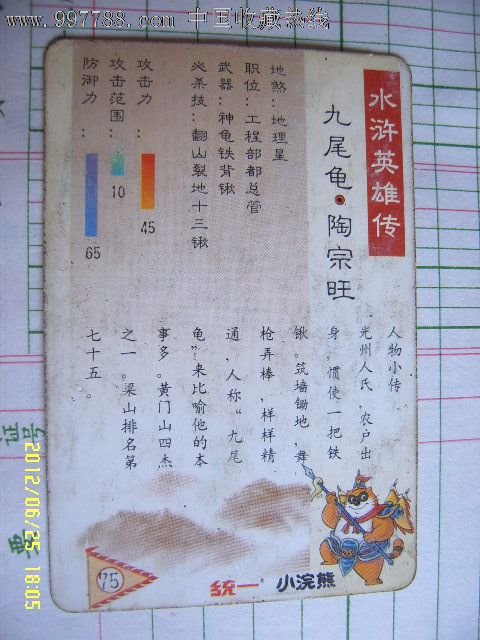 www.997788.com 中国收藏热线
水浒英雄传
九尾龟·陶宗旺
地煞：地理星
职位：工程部都总管
武器：神龟铁背锹
必杀技：翻山裂地十三锹
攻击力：
45
攻击范围：
10
防御力：
65
人物小传
光州人氏，农户出
身，惯使一把铁
锹。筑墙锄地，舞
枪弄棒，样样精
通，人称“九尾
龟”来比喻他的本
事多。黄门山四杰
之一。梁山排名第
七十五。
75
统一 小浣熊
证号
2012/06/25 18:05